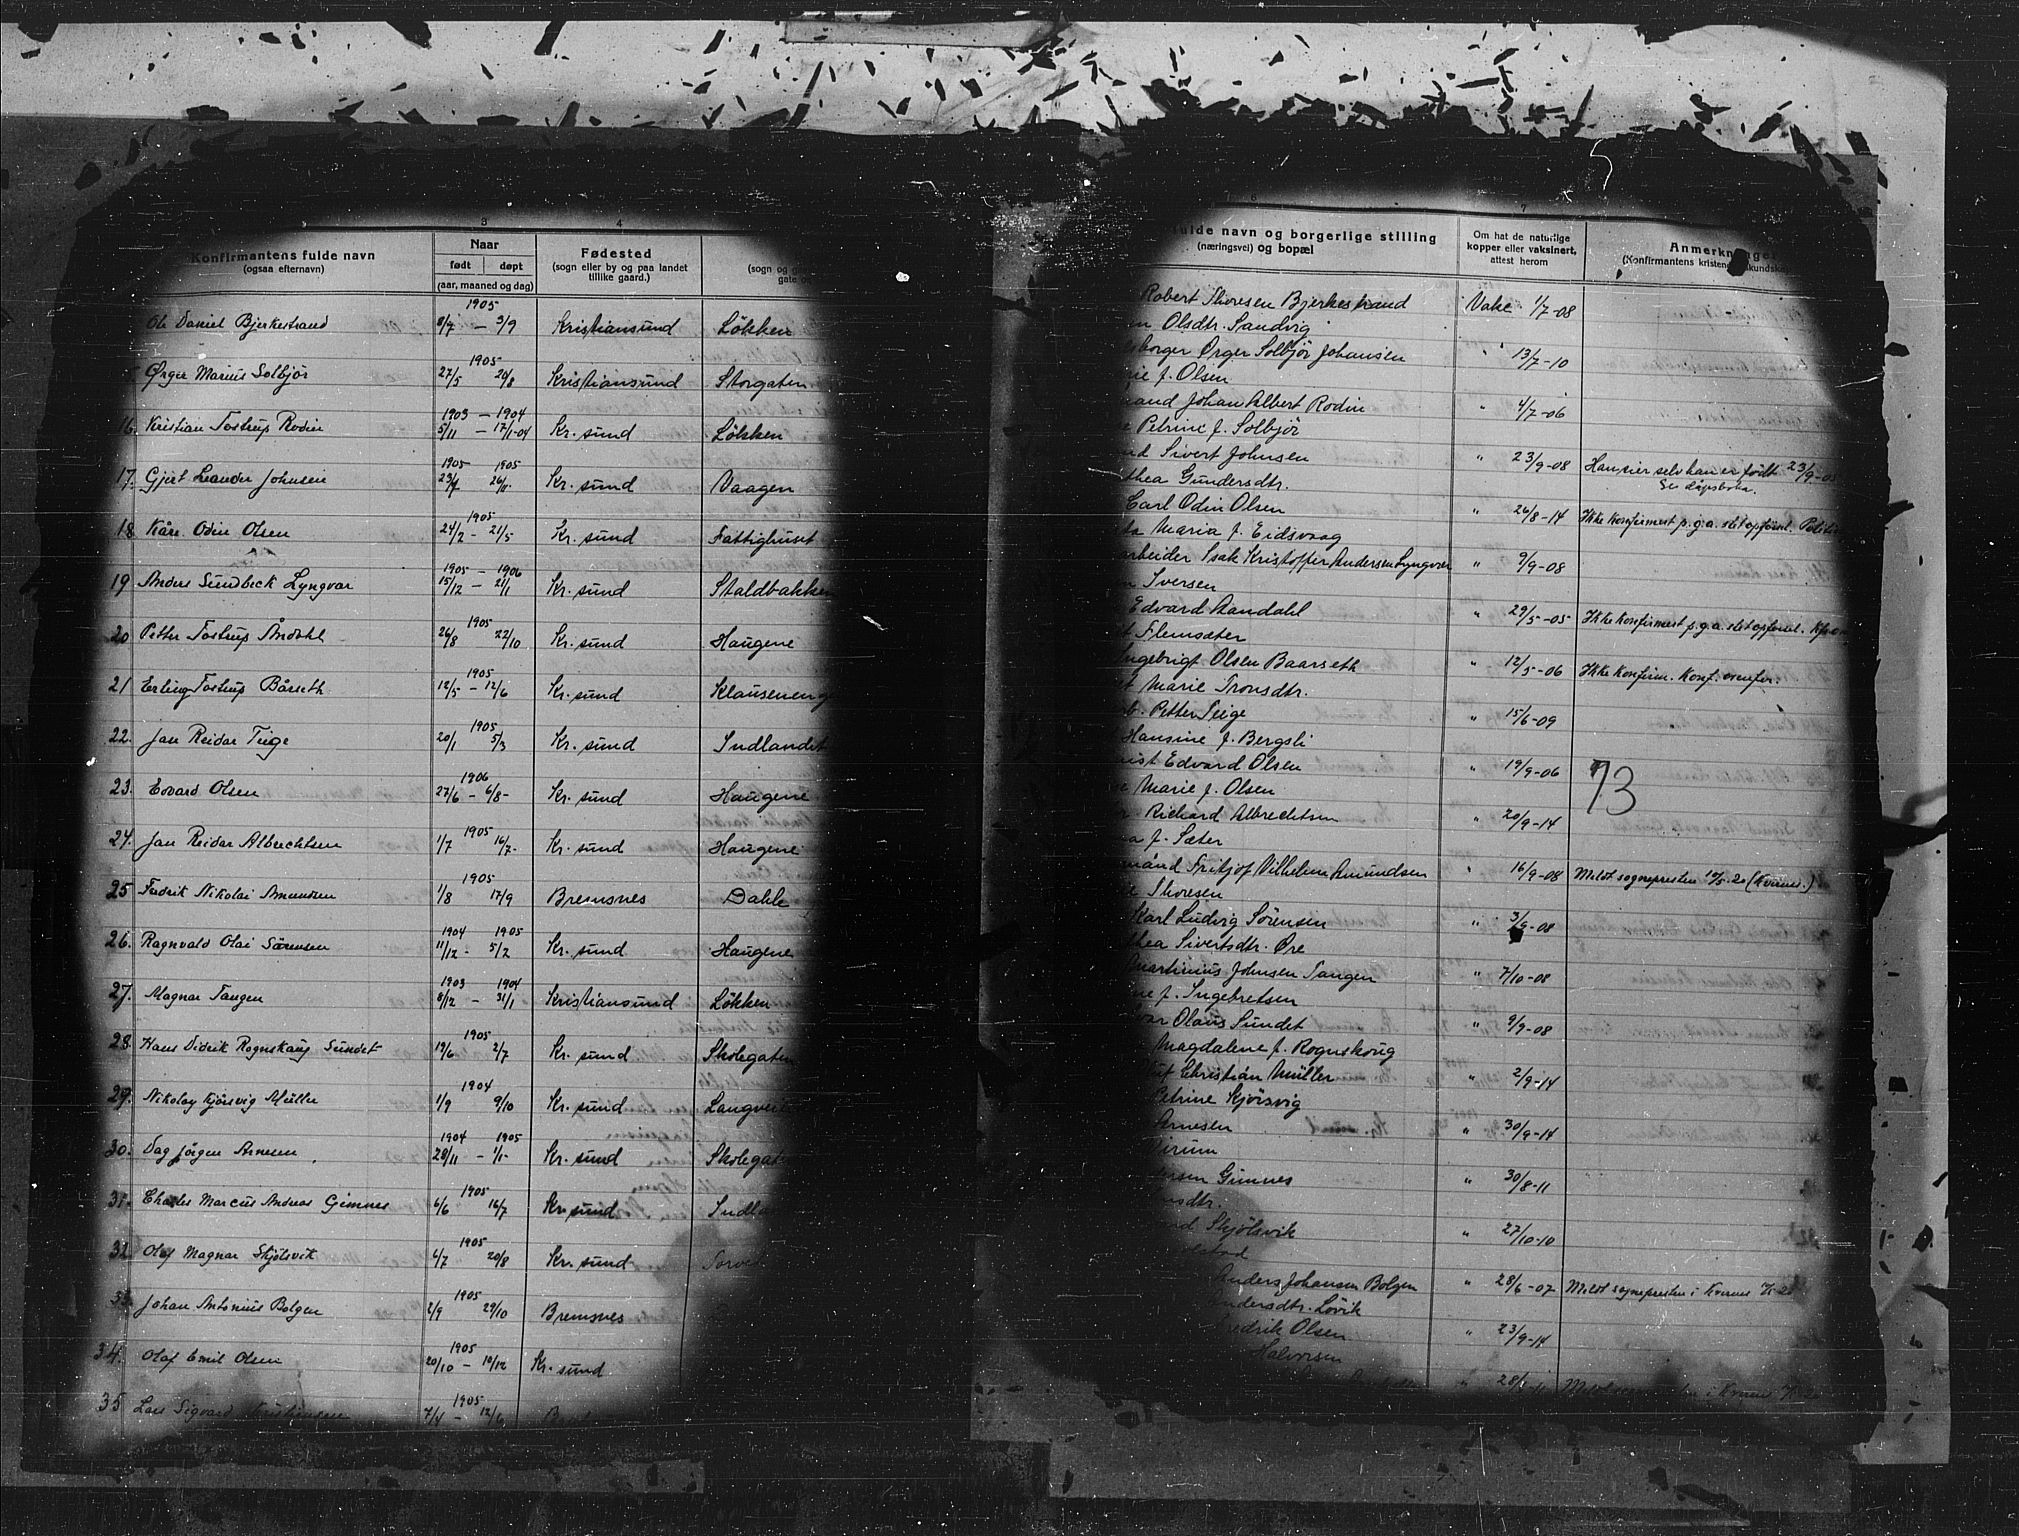 3 4
Konfirmantens fulde navn
(ogsaa efternavn)
Naar
født døpt
(aar, maaned og dag)
Fødested
(sogn eller by og paa landet
tillike gaard.)
(sogn og
gate
1905
Ole Daniel Bjerkestrand 8/7 — 3/9 Kristiansund Løkken
1905
Ørger Marius Solbjør 27/5 20/8 Kristiansund Storgaten
1903 — 1904
16. Kristian Tostrup Rodin 5/11 — 17/1-04 Kr. sund Løkken
1905 1905
17. Gjert Leander Johnsen 23/7 26/11 Kr. sund Vaagen
1905
18 Kåre Odin Olsen 24/2 - 21/5 Kr. sund Fattighuset
1905 — 1906
19 Anders Sundbeck Lyngvar 15/12 — 21/1 Kr. sund Staldbakken
1905
20 Petter Tostrup Åndahl 26/8 22/10 Kr. sund Haugene
1905
21 Erling Tostrup Bårseth 12/5 - 12/6 Kr. sund Klausenen
1905
22. Jan Reidar Teige 20/1 5/3 Kr. sund Indlandet
1906
23. Edvard Olsen 27/6 - 6/8 - Kr. sund Haugene
1905
24. Jan Reidar Albrechtsen 1/7 16/7- Kr. sund Haugene
1905
25 Fredrik Nikolai Amundsen 1/8 17/9 Bremsnes Dahle
1904 1905
26. Ragnvald Olai Sørensen 11/12 - 5/2 Kr. sund Haugene
1903 1904
27. Magnar Tangen 8/12 — 31/1 Kristiansund Løkken
1905
28. Hans Didrik Rognskaug Sundet 19/6 2/7 Kr. sund Skolegaten
1904
29. Nikolay Kjørsvig Müller 1/9 9/10 Kr. sund Langvei
1904 1905
30. Dag Jørgen Arnesen 28/11 — 1/1- Kr. sund Skolegat
1905
31. Charles Marcus Andreas Gimnes 6/6 16/7 Kr. sund Indla
1905
32. Olaf Magnar Skjølsvik 6/7 20/8 Kr. sund Torve
1905
33. Johan Antonius Bolgen 2/9 29/10 Bremsnes
1905
34. Olaf Emil Olsen 20/10 — 10/12 Kr. sund
1905
35 Lars Sigvard Kristiansen 7/4 — 12/6
6 7
fulde navn og borgerlige stilling
(næringsvei) og bopæl
Om hat de naturlige
kopper eller vaksinert,
attest herom
Anmerkninger
(Konfirmantens kristendomskundskap
Robert Thoresen Bjerkestrand Vakc 1/7-08
Olsdtr. Sandvig
borger Ørger Solbjør Johansen " 13/7-10
f. Olsen
mand Johan Albert Rodin " 4/7-06
Petrine f. Solbjør
Sivert Johnsen " 23/9-08 Han sier selv han er født 23/9-05
thea Gundersdtr. Se dåpsboka.
Carl Odin Olsen " 26/8-14 Ikke konfirmert p.g.a. slet opførsel.
Maria f. Eidsvaag
arbeider Isak Kristoffer Andersen Lyngvær " 9/9-08
Iversen
Edvard Aandahl " 29/5-05 Ikke konfirmert p.g.a. slet opførsel.
Flemsæter
Ingebrigt Olsen Baarseth " 12/5-06 Ikke konfirm. Konf.
Marie Tronsdtr.
Petter Teige " 15/6-09
Hansine f. Bergsli
Edvard Olsen " 19/9-06
Marie f. Olsen
73
Richard Albrechtsen " 20/9-14
f. Sæter
mand Fritjof Vilhelm Amundsen " 16/9-08 Meldt sognepresten 10/5-20 (Kvernes.)
Thoresen
Karl Ludvig Sørensen " 3/9-08
thea Sivertsdtr. Øre
Martinus Johnsen Tangen " 7/10-08
f. Ingebretsen
Olaus Sundet " 9/9-08
Magdalene f. Rognskoug
Christian Müller " 2/9-14
Petrine Kjørsvig
Arnesen " 30/9-14
Virum
Gimnes " 30/8-11
dtr.
Skjølsvik " 27/10-10
stad
Anders Johansen Bolgen " 28/6-07 Meldt sognepresten i Kvernes
Andersdtr. Løvik
Fredrik Olsen " 23/9-14
Halvorsen
" 28/ i Kvernes